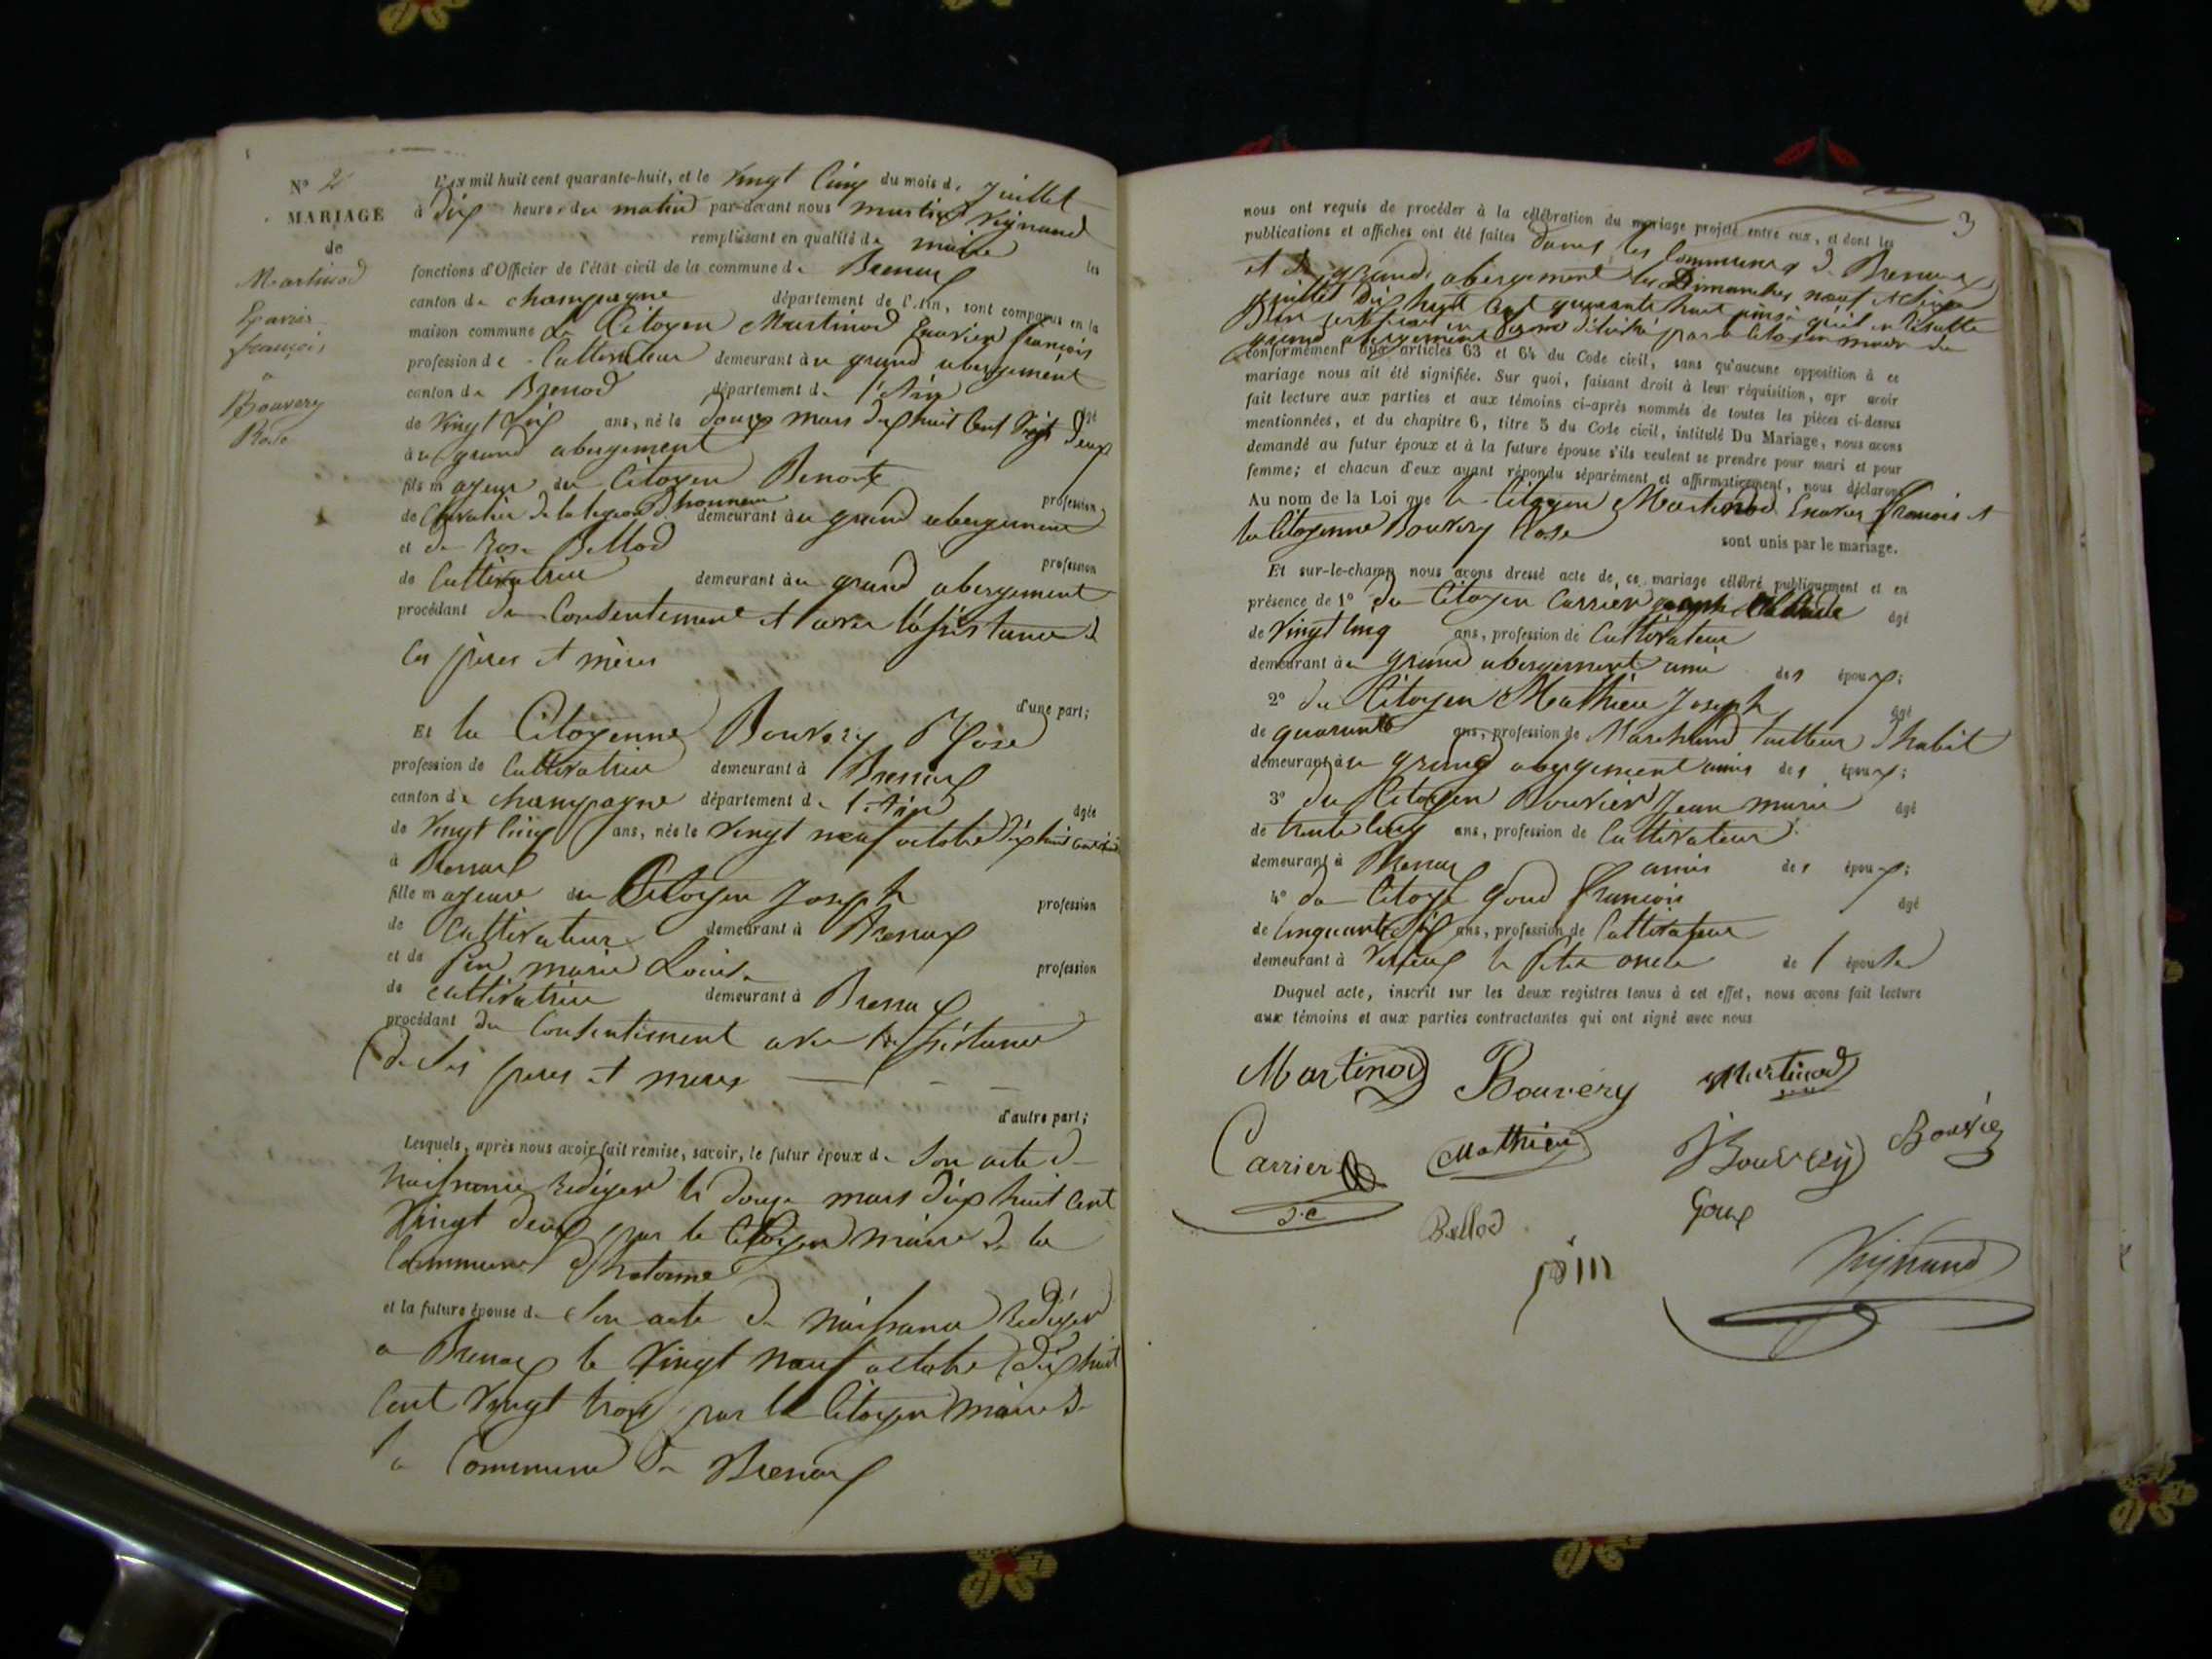 N° 2
MARIAGE
de
Martinod
Xavier
françois
a
Bouvery
Rose
L'an mil huit cent quarante-huit, et le Vingt Cinq du mois de Juillet
à Dix heures du matin par-devant nous Vignand
remplissant en qualité de maire les
fonctions d'Officier de l'état civil de la commune de Brenaz
canton de champagne département de l'Ain, sont comparus en la
maison commune Le Citoyen Martinod Xavier françois
profession de Cultivateur demeurant au grand abergement
canton de Brenod département de l'Ain âgé
de Vingt Six ans, né le Douze mars dix huit Cent Vingt Deux
au grand abergement
fils majeur du Citoyen Benoit profession
de Chevalier de la legion D'honneur demeurant au grand abergement
et de Rose Bellod profession
de Cultivatrice demeurant au grand abergement
procédant du Consentement et avec l'assistance de
Ces pères et mères
d'une part;
Et la Citoyenne Bouvery Rose
profession de Cultivatrice demeurant à Brenaz
canton de champagne département de l'Ain âgée
de Vingt Cinq ans, née le Vingt neuf octobre Dix huit Cent
à Brenaz
fille majeure du Citoyen Joseph profession
de Cultivateur demeurant à Brenaz
et de feu marie Louise profession
de Cultivatrice demeurant à Brenaz
procédant du Consentement avec l'assistance
de Ses peres et meres
d'autre part;
Lesquels, après nous avoir fait remise, savoir, le futur époux de Son acte de
Naissance Rediger le douze mars dix huit Cent
Vingt deux par le Citoyen maire de la
Commune d'hotonne
et la future épouse de Son acte de Naissance Rediger
a Brenaz le Vingt neuf octobre Dix huit
Cent Vingt trois par le Citoyen maire de
la Commune de Brenaz
3
nous ont requis de procéder à la célébration du mariage projeté entre eux, et dont les
publications et affiches ont été faites Dans les Communes de Brenaz
et du grand abergement les Dimanches neuf et Seize
Juillet Dix huit Cent quarante huit ainsi qu'il en Résulte
D'un certificat en forme Délivré par le Citoyen maire du
grand abergement
conformément aux articles 63 et 64 du Code civil, sans qu'aucune opposition à ce
mariage nous ait été signifiée. Sur quoi, faisant droit à leur réquisition, apr avoir
fait lecture aux parties et aux témoins ci-après nommés de toutes les pièces ci-dessus
mentionnées, et du chapitre 6, titre 5 du Code civil, intitulé Du Mariage, nous avons
demandé au futur époux et à la future épouse s'ils veulent se prendre pour mari et pour
femme; et chacun d'eux ayant répondu séparément et affirmativement, nous déclarons
Au nom de la Loi que le Citoyen Martinod Xavier françois et
la Citoyenne Bouvery Rose
sont unis par le mariage.
Et sur-le-champ nous avons dressé acte de ce mariage célébré publiquement et en
présence de 1° du Citoyen Carrier joseph âgé
de Vingt Cinq ans, profession de Cultivateur
demeurant au grand abergement ami des époux;
2° du Citoyen Mathieu Joseph âgé
de quarante ans, profession de Marchand tailleur d'habit
demeurant au grand abergement amis des époux;
3° du Citoyen Bouvier Jean marie âgé
de trente Cinq ans, profession de Cultivateur
demeurant à Brenaz amis des époux;
4° du Citoyen françois âgé
de Cinquante Six ans, profession de Cultivateur
demeurant à le Petit oncle de l'épouse
Duquel acte, inscrit sur les deux registres tenus à cet effet, nous avons fait lecture
aux témoins et aux parties contractantes qui ont signé avec nous
Martinod Bouvery Martinod
Carrier Mathieu Bouvery Bouvier
J.C
Bellod Goux
Vignand